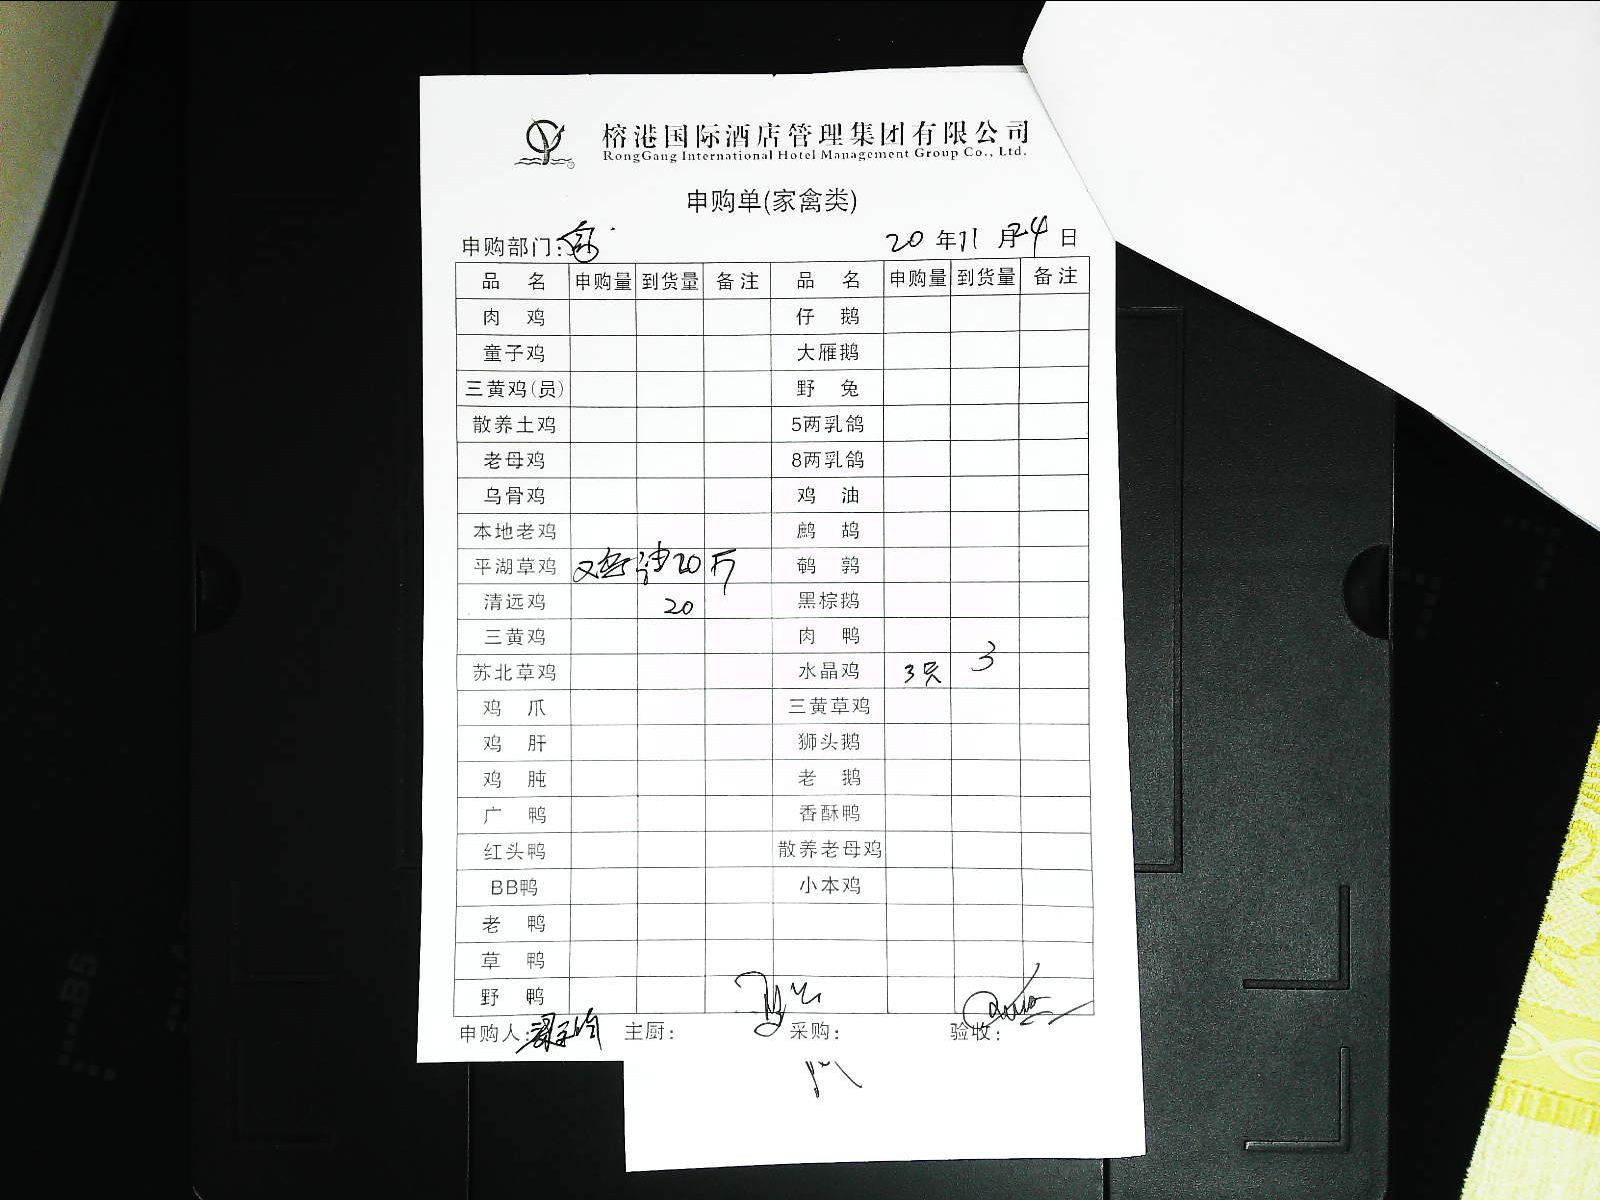 榕港国际酒店管理集团有限公司
RongGang International Hotel Management Group Co., Ltd.
申购单(家禽类)
申购部门:
20 年 11 月 24 日
品 名 申购量 到货量 备注 品 名 申购量 到货量 备注
肉 鸡 仔 鹅
童子鸡 大雁鹅
三黄鸡(员) 野 兔
散养土鸡 5两乳鸽
老母鸡 8两乳鸽
乌骨鸡 鸡 油
本地老鸡 鹧 鸪
平湖草鸡 鸡油20斤 鹌 鹑
清远鸡 20 黑棕鹅
三黄鸡 肉 鸭
苏北草鸡 水晶鸡 3只 3
鸡 爪 三黄草鸡
鸡 肝 狮头鹅
鸡 肫 老 鹅
广 鸭 香酥鸭
红头鸭 散养老母鸡
BB鸭 小本鸡
老 鸭
草 鸭
野 鸭
申购人: 主厨: 采购: 验收: